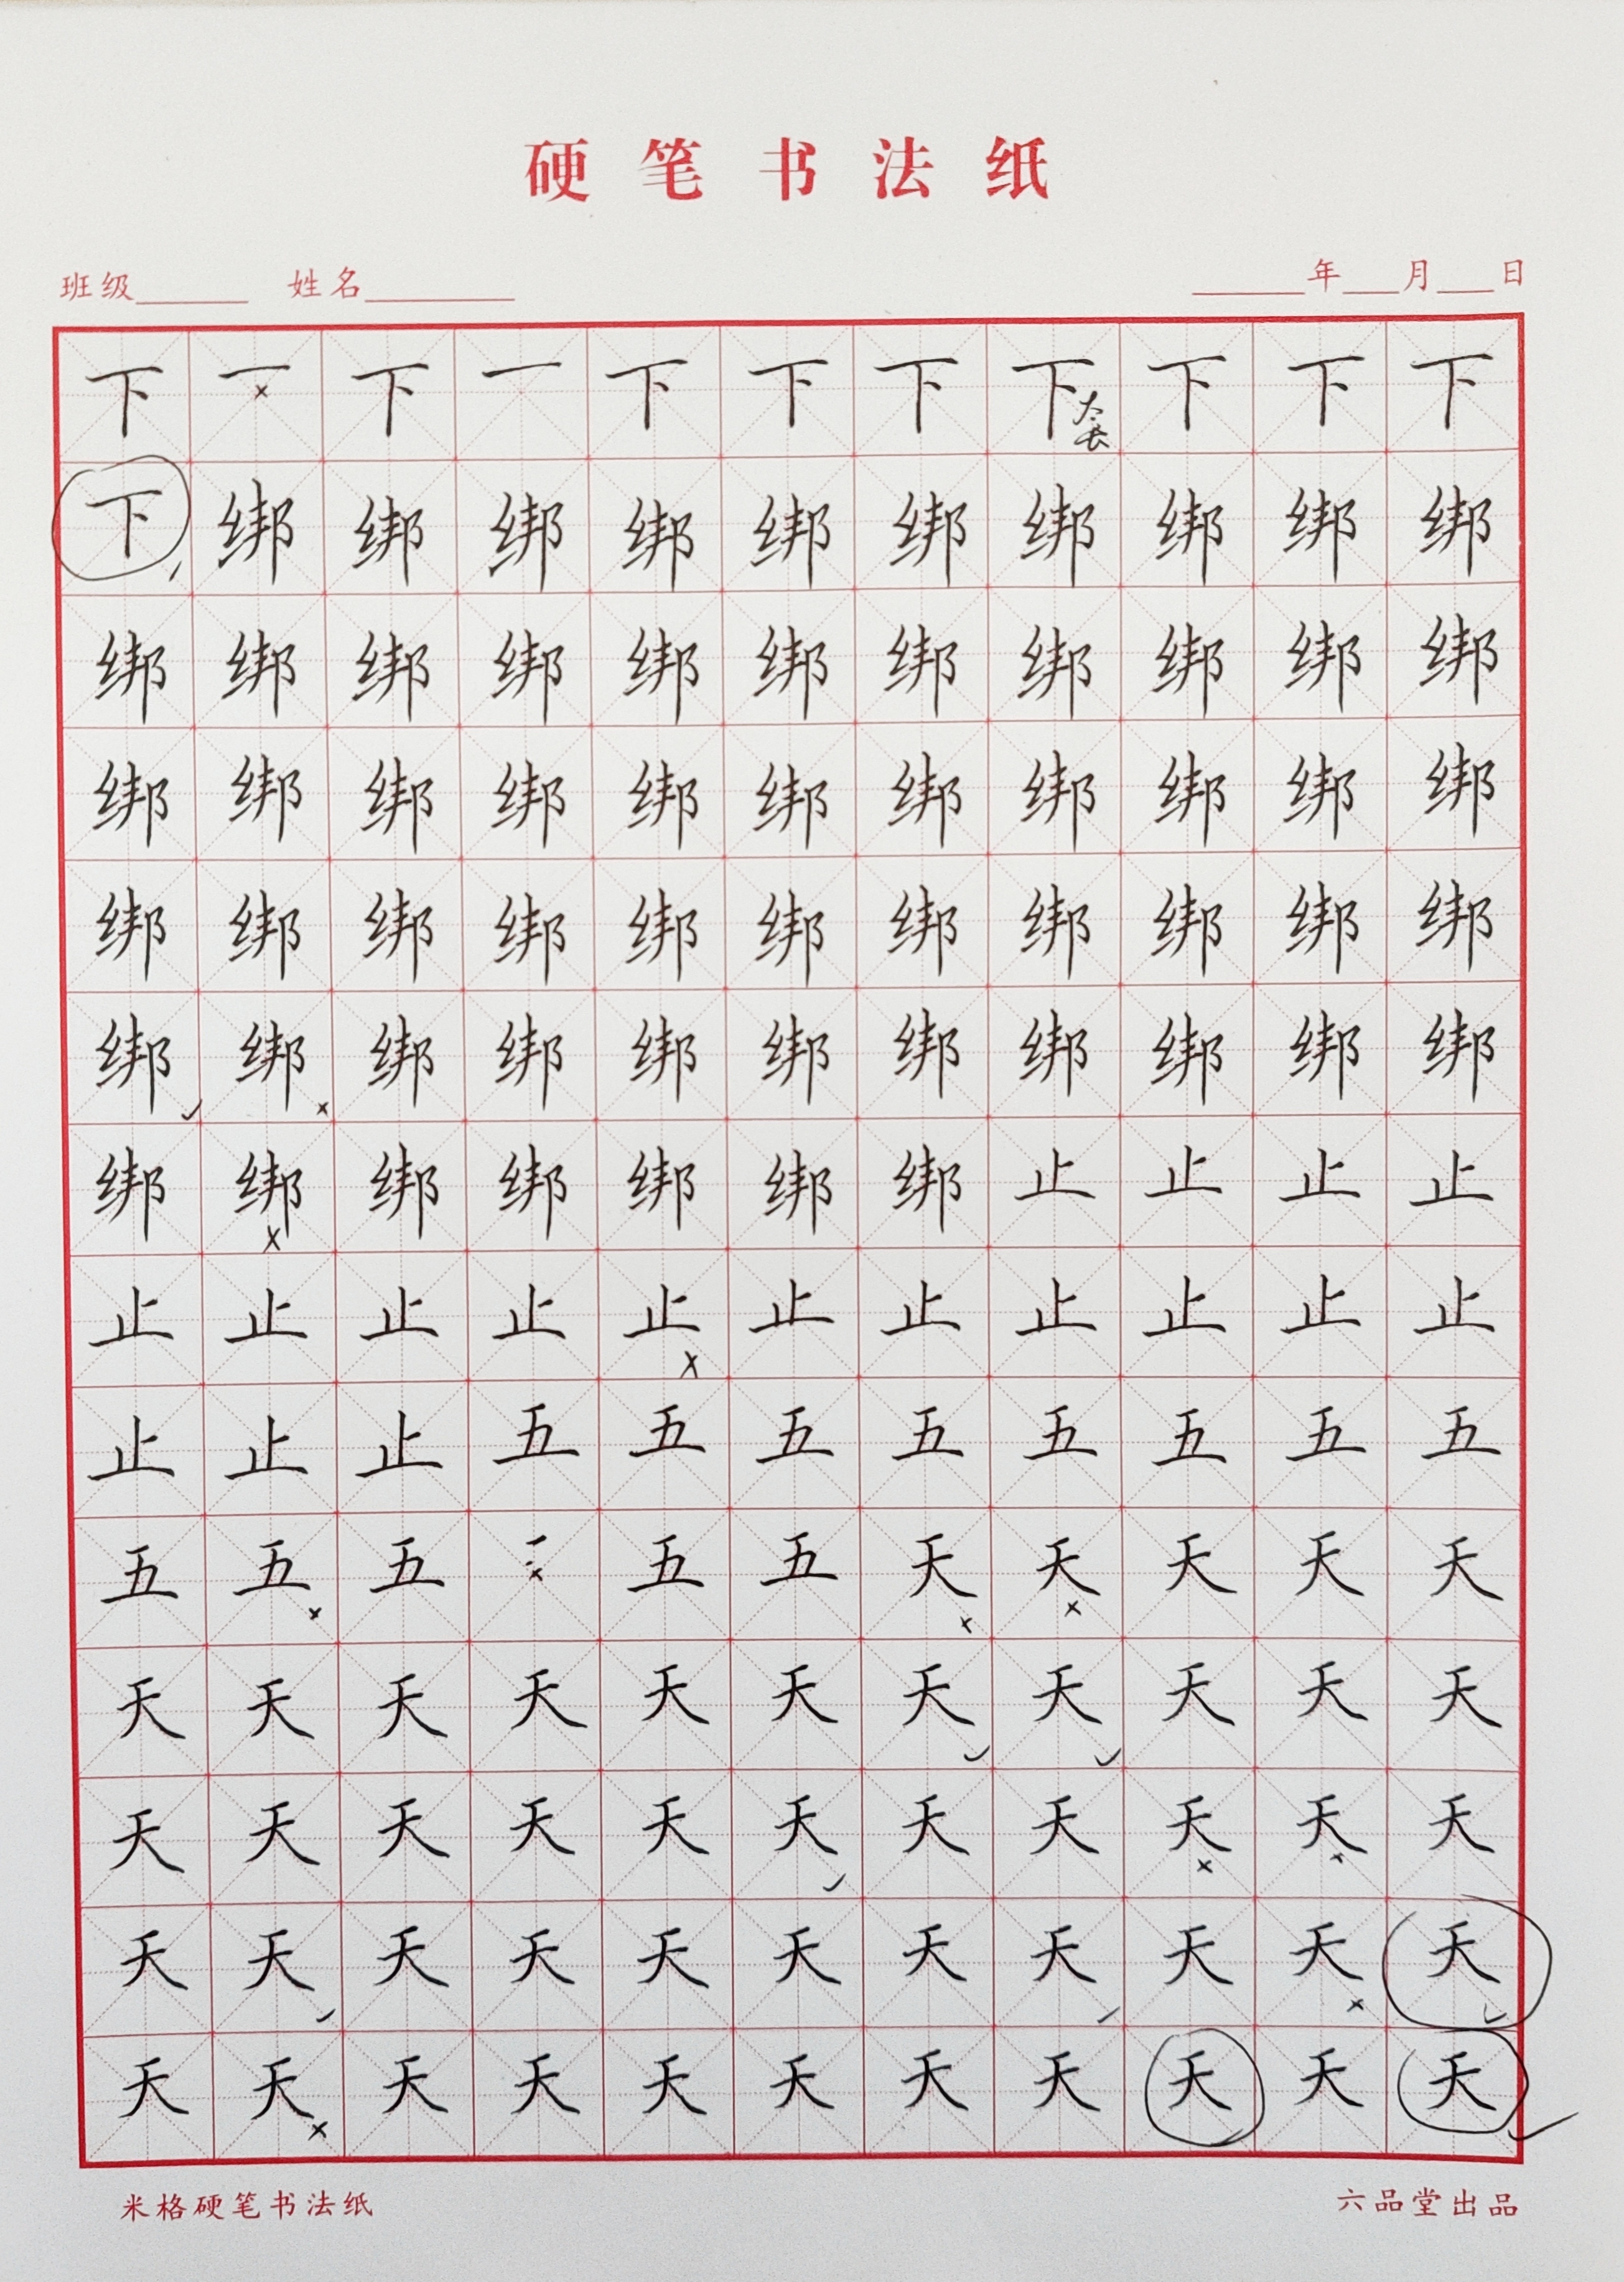 硬笔书法纸
班级 姓名 年 月 日
下 一 下 一 下 下 下 下 太长 下 下 下
下 绑 绑 绑 绑 绑 绑 绑 绑 绑 绑
绑 绑 绑 绑 绑 绑 绑 绑 绑 绑 绑
绑 绑 绑 绑 绑 绑 绑 绑 绑 绑 绑
绑 绑 绑 绑 绑 绑 绑 绑 绑 绑 绑
绑 绑 绑 绑 绑 绑 绑 绑 绑 绑 绑
绑 绑 绑 绑 绑 绑 绑 止 止 止 止
止 止 止 止 止 止 止 止 止 止 止
止 止 止 五 五 五 五 五 五 五 五
五 五 五 五 五 天 天 天 天 天
天 天 天 天 天 天 天 天 天 天 天
天 天 天 天 天 天 天 天 天 天 天
天 天 天 天 天 天 天 天 天 天 天
天 天 天 天 天 天 天 天 天 天 天
米格硬笔书法纸 六品堂出品